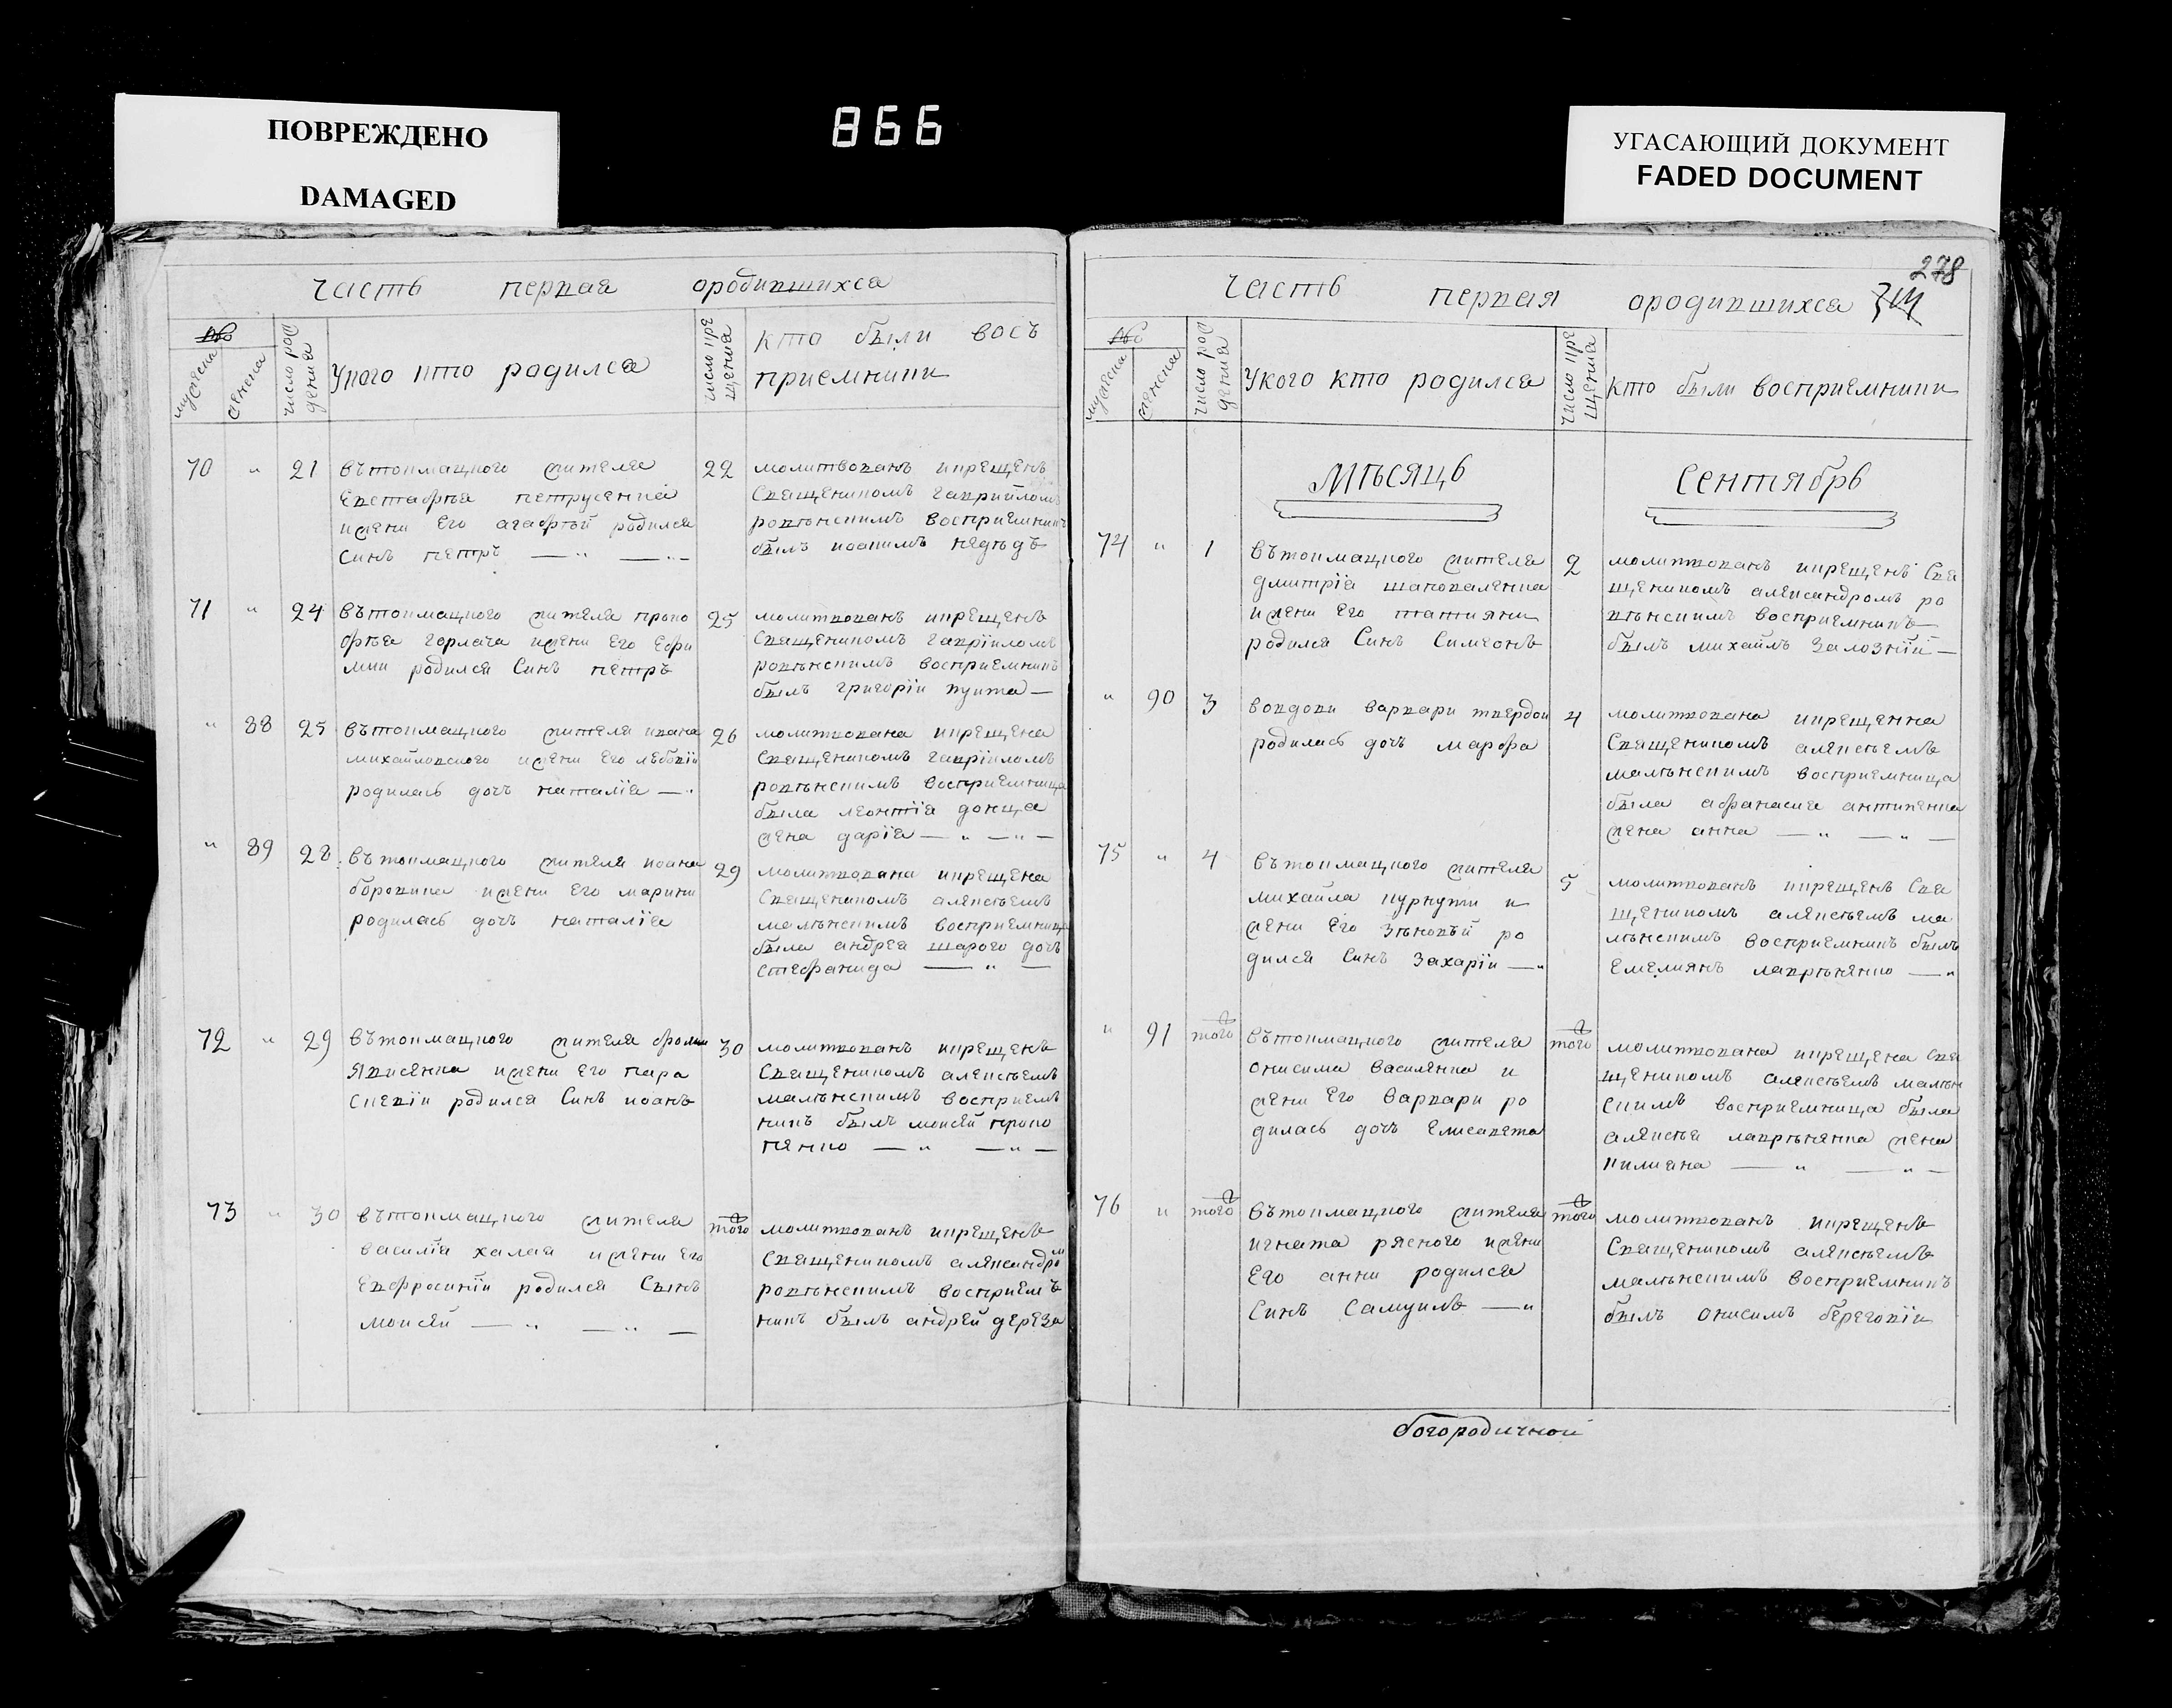 ПОВРЕЖДЕНО
DAMAGED
866
УГАСАЮЩИЙ ДОКУМЕНТ
FADED DOCUMENT
Часть первая ородившихся
№
мужеска
женска
число рож
дения
Укого кто родился
число кре
щения
кто были вос
приемники
70 " 21 вътокмацкого жителя
Евстафъа петрусенка
ижени его агафъи родился
Синъ петръ — " — " —
22 молитвованъ икрещенъ
Священикомъ гаврииломъ
ровънскимъ восприемникъ
былъ иоакимъ
71 " 24 вътокмацкого жителя проко
фъа горлача ижени его Ефи
мии родился Синъ петръ
25 молитвованъ икрещенъ
Священикомъ гавріиломъ
ровънскимъ восприемникъ
былъ григории —
" 88 25 вътокмацкого жителя ивана
михайловского ижени его
родилась дочь наталіа — "
26 молитвована икрещена
Священикомъ гавріиломъ
ровънскимъ восприемница
была леонтіа донца
жена даріа — " — " —
" 89 28 вътокмацкого жителя иоана
боровика ижени его марини
родилась дочь наталіа
29 молитвована икрещена
Священикомъ алексъемъ
малънскимъ восприемница
была андрея шарого дочь
стефанида — " —
72 " 29 вътокмацкого жителя
Явисенка ижени его пара
скевіи родился Синъ иоанъ
30 молитвованъ икрещенъ
Священикомъ алексъемъ
малънскимъ восприем
никъ былъ моисей проко
пенко — " — " —
73 " 30 вътокмацкого жителя
василіа халая ижени его
Евфросиніи родился Сынъ
моисей — " — " —
того молитвованъ икрещенъ
Священикомъ александром
ровънскимъ восприем
никъ былъ андрей дереза
278
Часть первая ородившихся
№
мужеска
женска
число рож
дения
Укого кто родился
число кре
щения
кто были восприемники
Мѣсяцъ Сентябрь
74 " 1 вътокмацкого жителя
дмитріа шаповаленка
ижени его татияни
родился Синъ Симеонъ
2 молитвованъ икрещенъ Свя
щеникомъ александромъ ро
вънскимъ восприемникъ
былъ михайлъ Залозній —
" 90 3 вовдови варвари твердои
родилась дочь марфа
4 молитвована икрещенна
Священикомъ алексъемъ
малънскимъ восприемница
была афанасия антипенка
жена анна — " — " —
75 " 4 вътокмацкого жителя
михайла куркути и
жени его Зъновъи ро
дился Синъ Захаріи — "
5 молитвованъ икрещенъ Свя
щеникомъ алексъемъ ма
лънскимъ восприемникъ былъ
Емелиянъ лавръненко — "
" 91 того вътокмацкого жителя
онисима василенка и
жени его варвари ро
дилась дочь Елисавета
того молитвована икрещена Свя
щеникомъ алексъемъ малън
скимъ восприемница была
алексъя лавръненка жена
киликиа — " — " —
76 " того вътокмацкого жителя
игната рясного ижени
его анни родился
Синъ Самуилъ — "
того молитвованъ икрещенъ
Священикомъ алексъемъ
малънскимъ восприемникъ
былъ онисимъ береговіи
богородичной